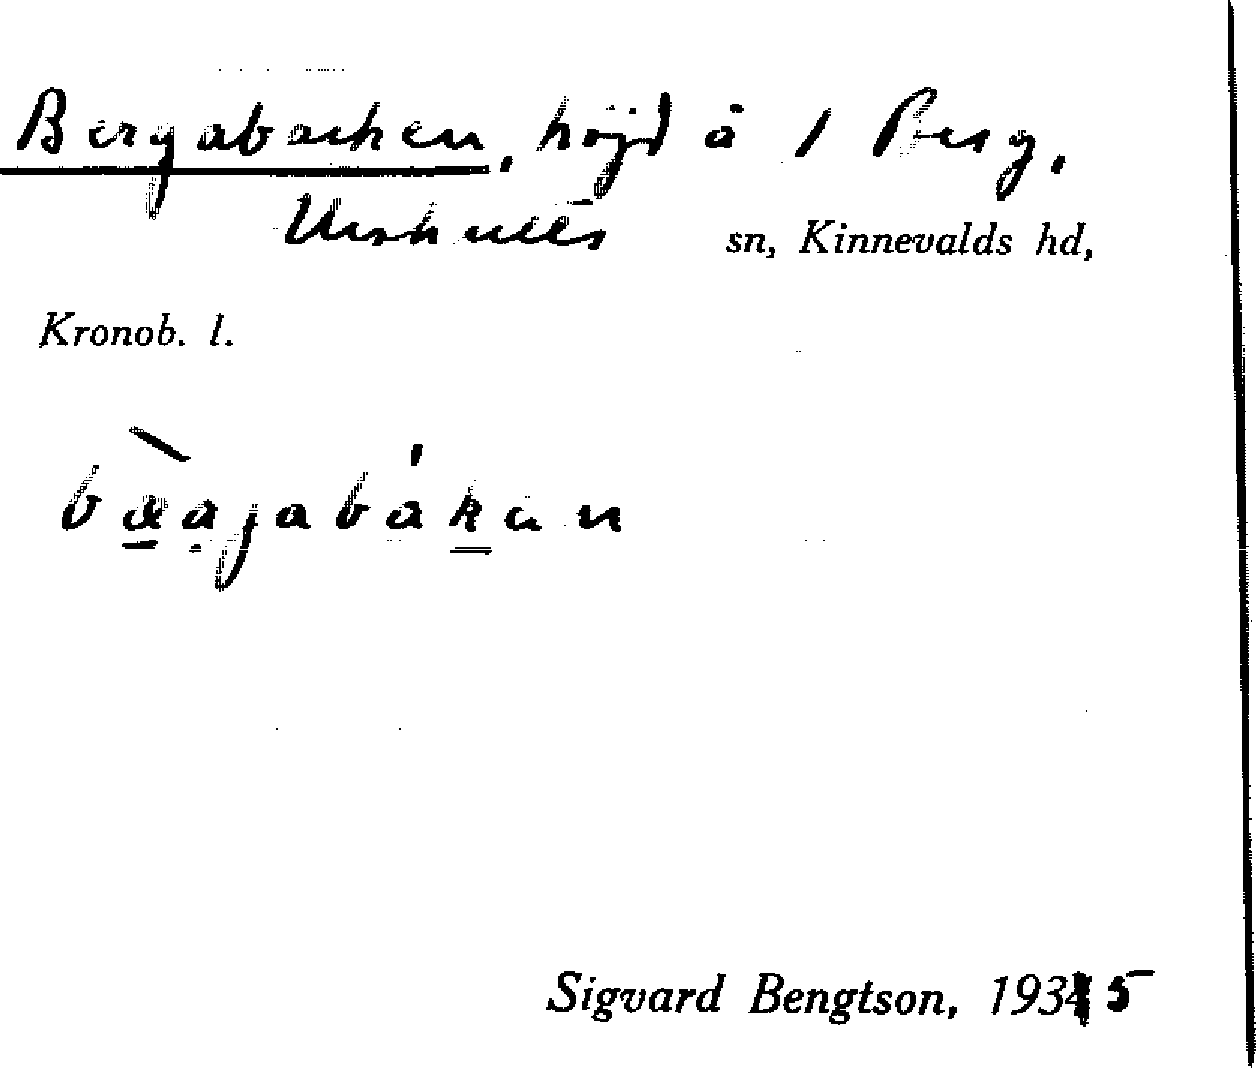 Bergabacken, höjd å 1 Berg,
Urshults sn, Kinnevalds hd,
Kronob. l.
Sigvard Bengtson, 1935